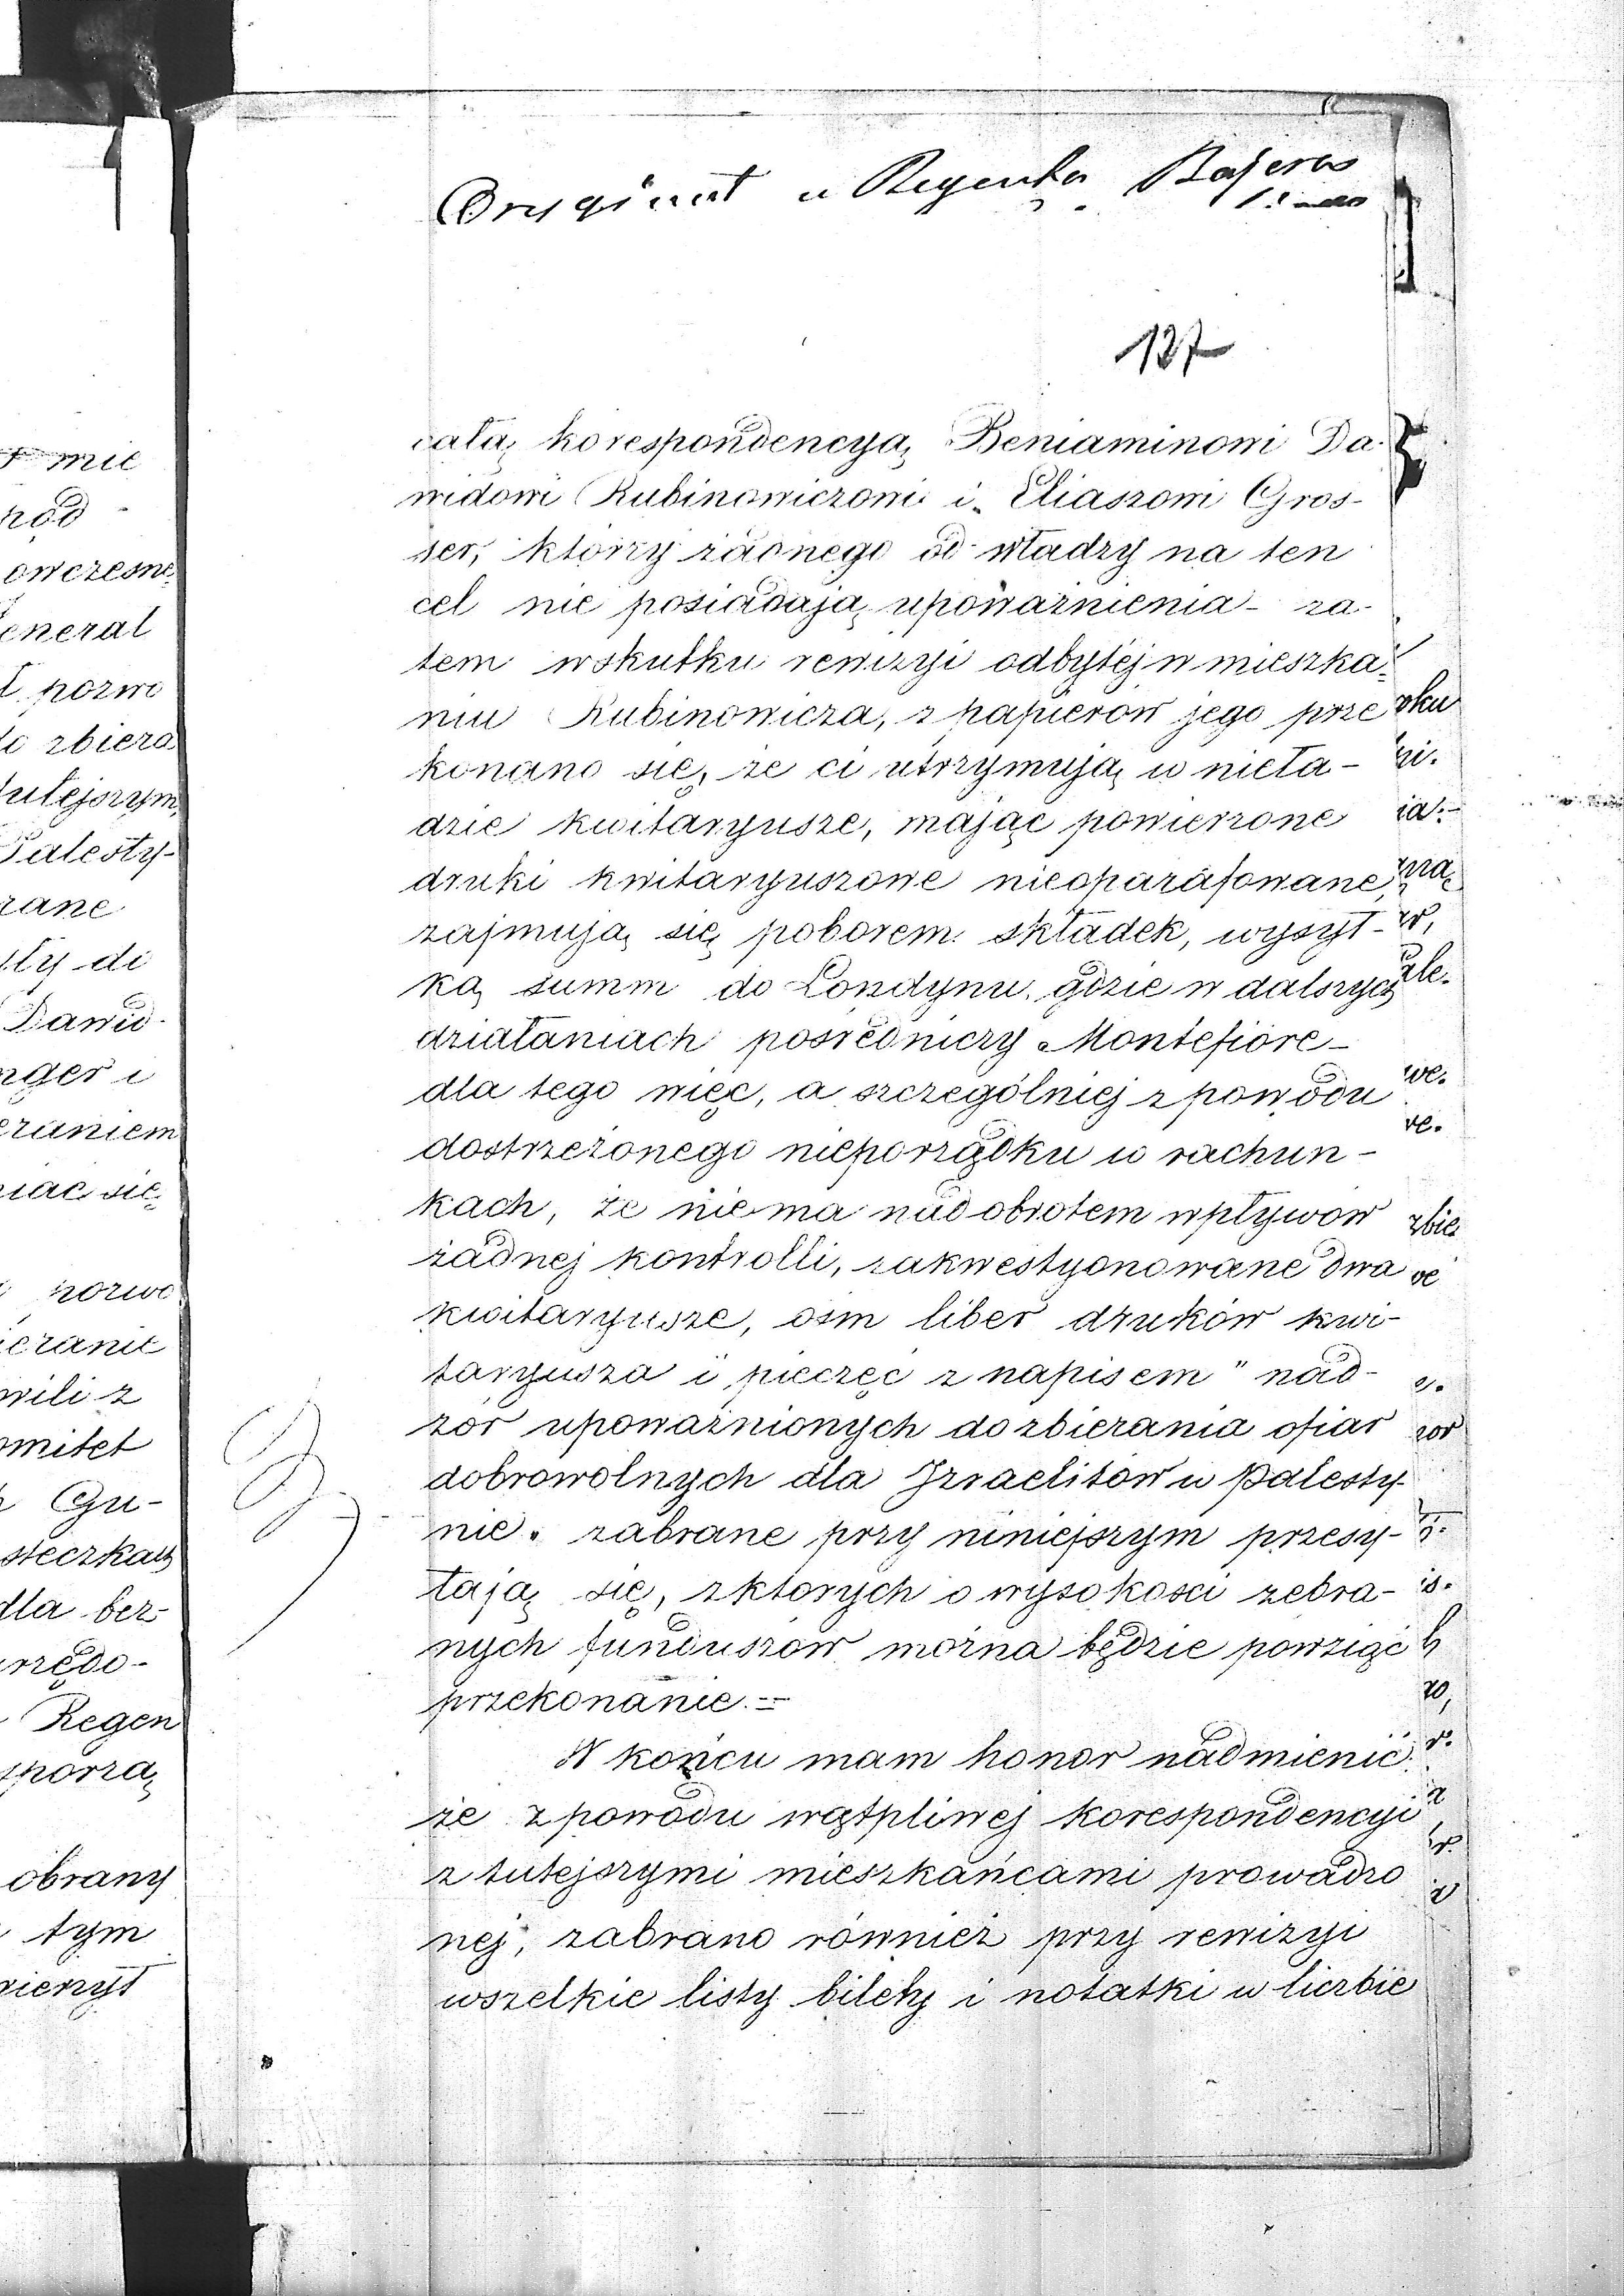 Oryginał u Regenta Bajera
137
całą korespondencyą Beniaminowi Da-
widowi Rubinowiczowi i Eliaszowi Gros-
ser, którzy żadnego od władzy na ten
cel nie posiadają upoważnienia - za-
tem wskutku rewizyi odbytéj w mieszka-
niu Rubinowicza, z papierów jego prze
konano się, że ci utrzymują w nieła-
dzie kwitaryusze, mając powierzone
druki kwitaryuszowe nieoparafowane,
zajmują się poborem składek, wysył-
ką summ do Londynu, gdzie w dalszych
działaniach pośredniczy Montefiore -
dla tego więc, a szczególniej z powodu
dostrzeżonego nieporządku w rachun-
kach, że niema nad obrotem wpływów
żadnej kontrolli, zakwestyonowane dwa
kwitaryusze, ośm liber druków kwi-
taryusza i pieczęć z napisem " nad-
zór upoważnionych do zbierania ofiar
dobrowolnych dla Izraelitów w Palesty-
nie " zabrane przy niniejszym przesy-
łają się, z których o wysokości zebra-
nych funduszów można będzie powziąć
przekonanie. =
W końcu mam honor nadmienić
że z powodu wątpliwej korespondencyi
z tutejszymi mieszkańcami prowadzo
nej, zabrano również przy rewizyi
wszelkie listy bilety i notatki w liczbie
mie
ród
ówczesne
enerał
pozwo
zbiera
tutejszym
Palesty-
rane
Dawid
nger i
eraniem
się
pozwo
ieranie
wili z
omitet
Gu-
steczkach
dla bez-
urzędo-
Regen
sporzą
obrany
tym
wienył